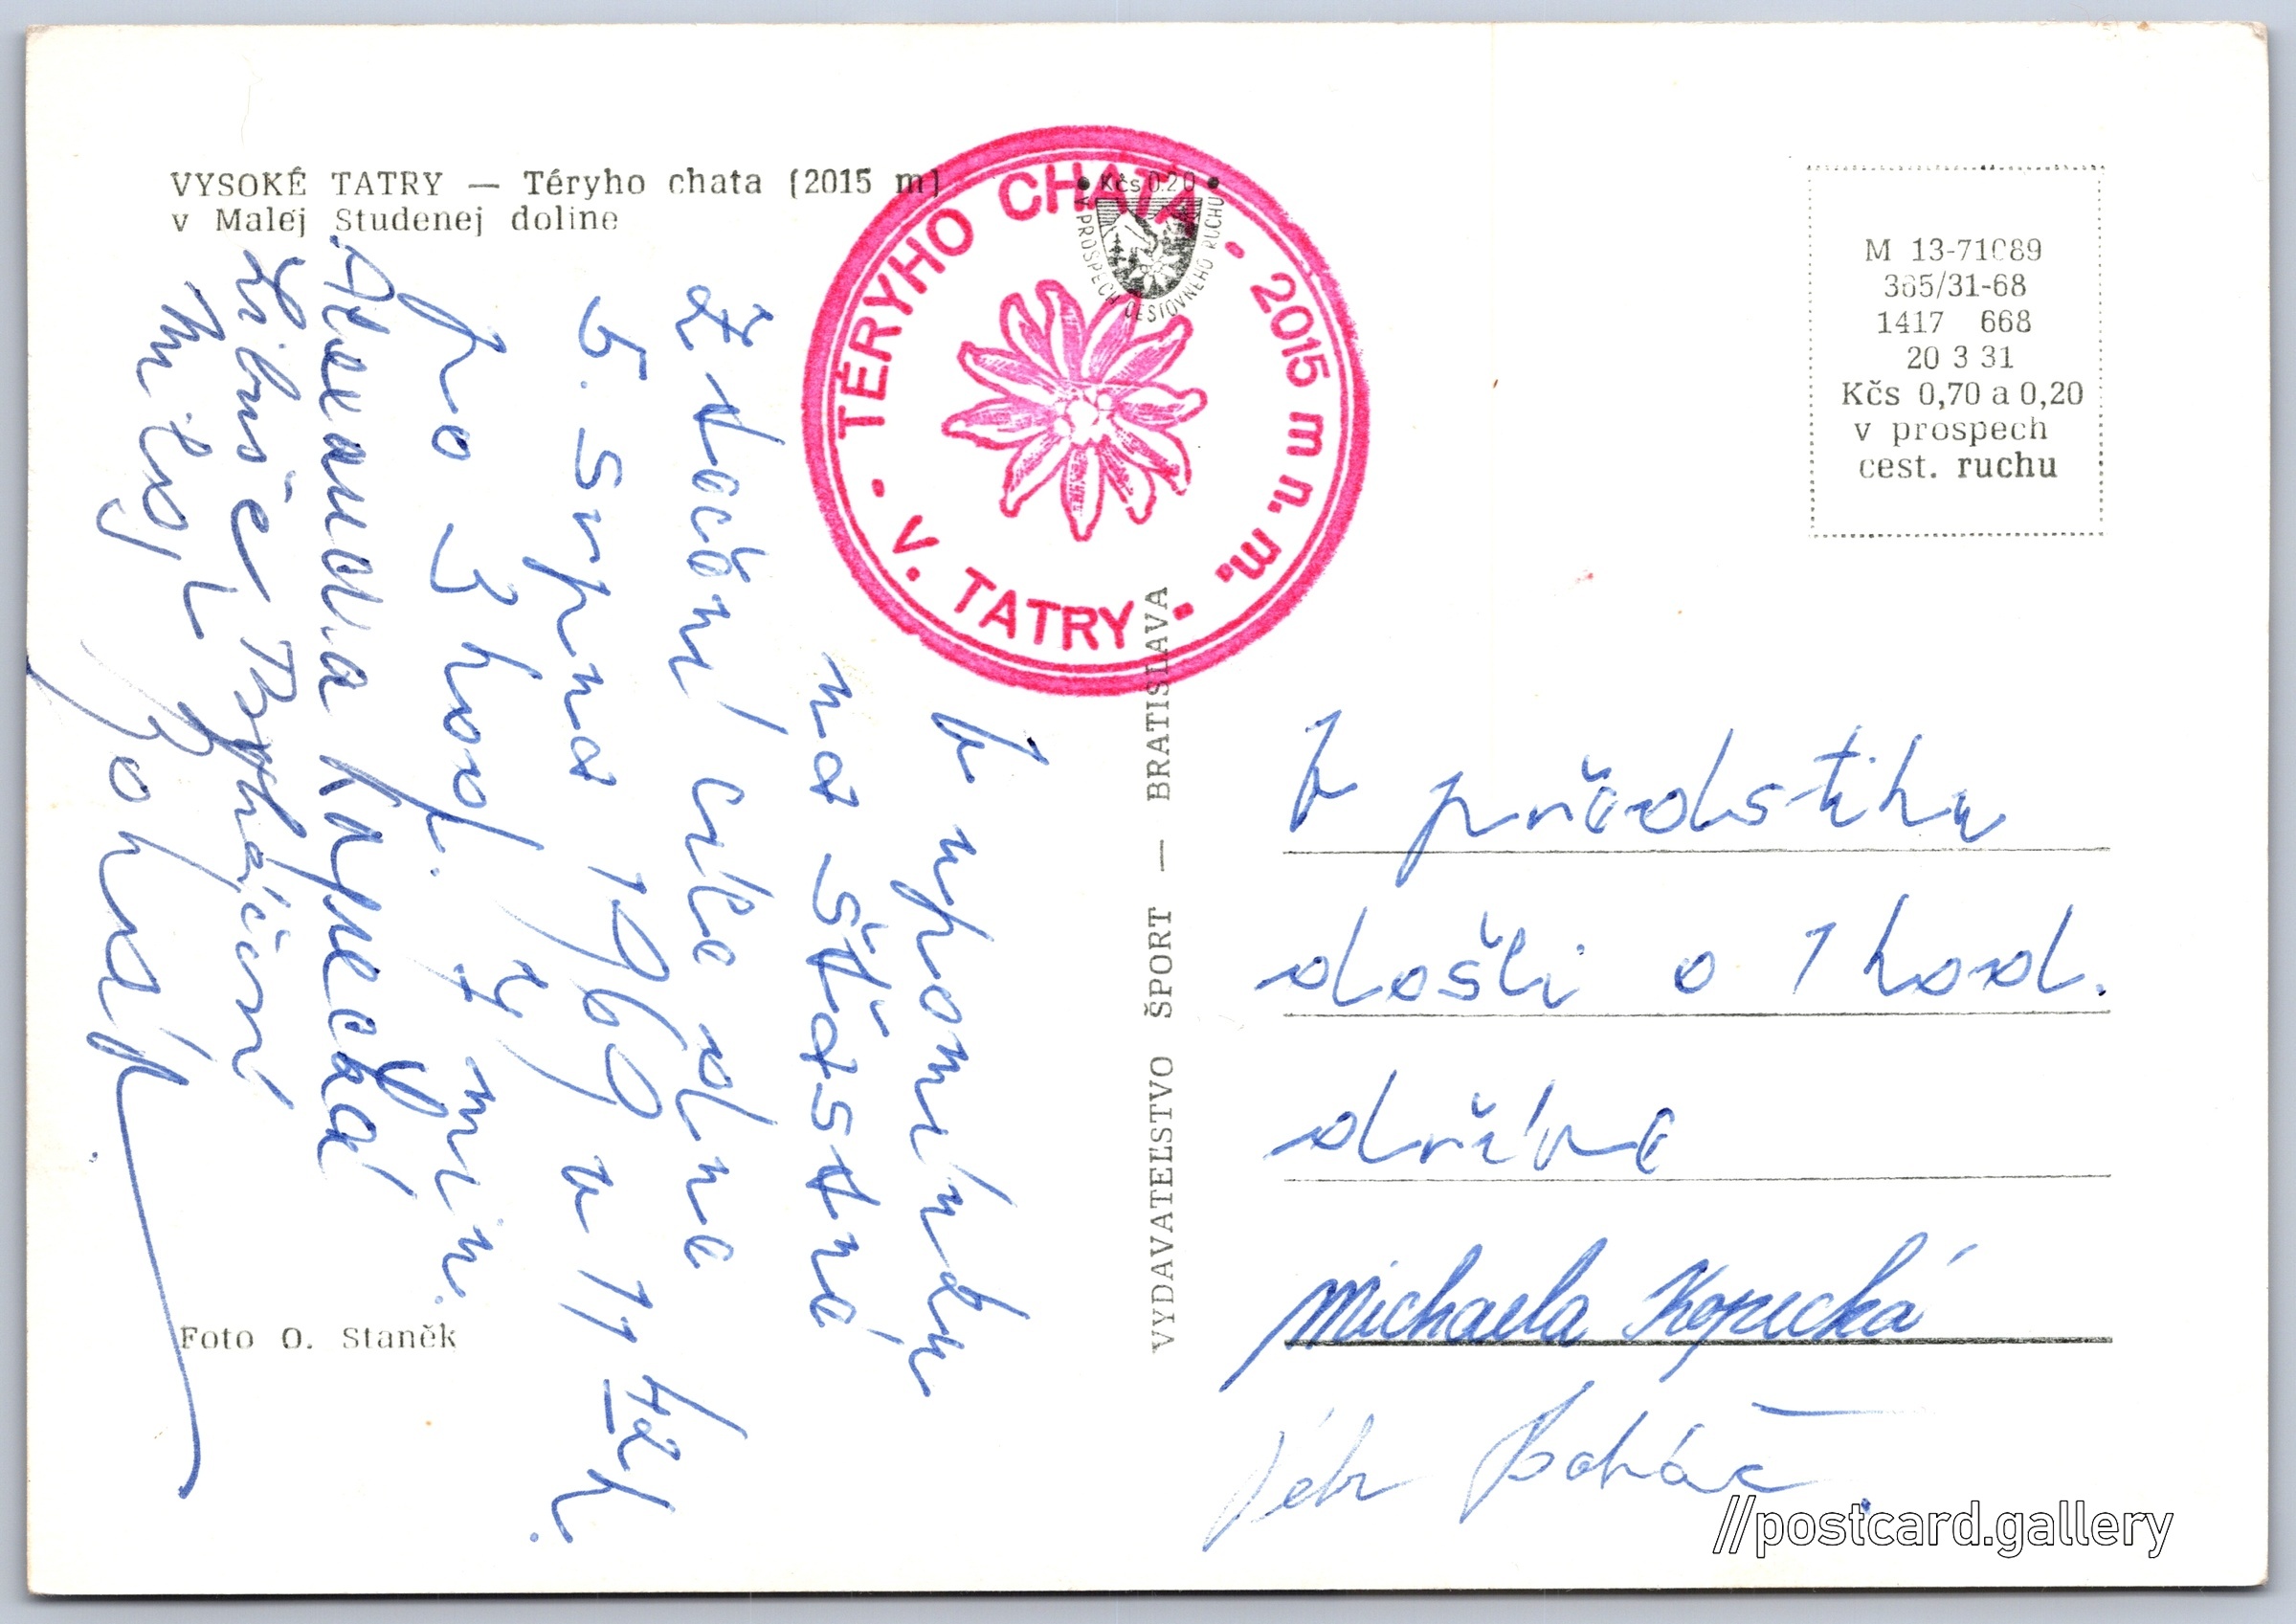 VYSOKÉ TATRY — Téryho chata (2015 m)
v Malej Studenej doline
• Kčs 0.20 •
V PROSPECH CESTOVNÉHO RUCHU
TÉRYHO CHATA · 2015 m n. m.
· V. TATRY ·
M 13-71089
365/31-68
1417 668
20 3 31
Kčs 0,70 a 0,20
v prospech
cest. ruchu
K upomínku
na šťastné
ztočení dne
5. srpna 1969 v 11 hod.
po 3 hod. min.
Alexandra Kopecká
Libuše
Miloš Bohdál
VYDAVATEĽSTVO ŠPORT — BRATISLAVA
V předstihu
došli o 1 hod.
dříve
Michaela Kopecká
Petr
Foto O. Staněk
//postcard.gallery